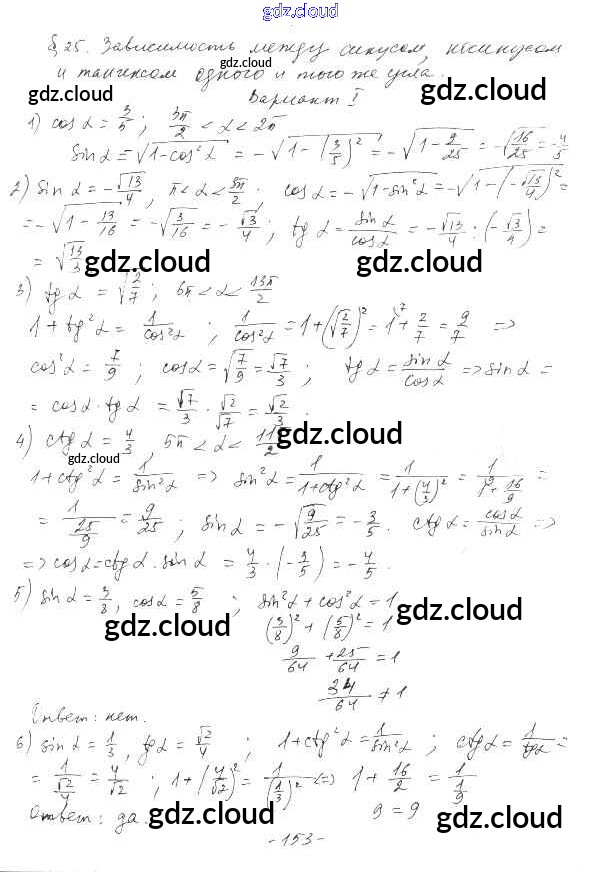 gdz.cloud
§ 25. Зависимость между синусом, косинусом
и тангенсом одного и того же угла.
gdz.cloud
Вариант I
1) cos α = 3/5 ; 3π/2 < α < 2π
gdz.cloud
sin α = -√(1-cos² α) = -√(1-(3/5)²) = -√(1-9/25) = -√(16/25) = -4/5
2) sin α = -√13/4 , π < α < 3π/2 . cos α = -√(1-sin² α) = -√(1-(-√13/4)²) =
= -√(1-13/16) = -√(3/16) = -√3/4 ; tg α = sin α/cos α = -√13/4 : (-√3/4) =
= √(13/3)
gdz.cloud gdz.cloud
3) tg α = √(2/7) ; 6π < α < 13π/2
1 + tg² α = 1/cos² α ; 1/cos² α = 1 + (√(2/7))² = 1 + 2/7 = 9/7 =>
cos² α = 7/9 ; cos α = √(7/9) = √7/3 ; tg α = sin α/cos α => sin α =
= cos α · tg α = √7/3 · √2/√7 = √2/3 .
4) ctg α = 4/3 , 5π < α < 11π/2
gdz.cloud
gdz.cloud
1 + ctg² α = 1/sin² α => sin² α = 1/(1+ctg² α) = 1/(1+(4/3)²) = 1/(1+16/9) =
= 1/(25/9) = 9/25 ; sin α = -√(9/25) = -3/5 . ctg α = cos α/sin α =>
=> cos α = ctg α · sin α = 4/3 · (-3/5) = -4/5 .
gdz.cloud
5) sin α = 3/8 , cos α = 5/8 ; sin² α + cos² α = 1
gdz.cloud gdz.cloud
(3/8)² + (5/8)² = 1
9/64 + 25/64 = 1
34/64 ≠ 1
Ответ: нет.
6) sin α = 1/3 , tg α = √2/4 ; 1 + ctg² α = 1/sin² α ; ctg α = 1/tg α =
= 1/(√2/4) = 4/√2 ; 1 + (4/√2)² = 1/(1/3)² <=> 1 + 16/2 = 1/(1/9)
Ответ: да. 9 = 9
gdz.cloud gdz.cloud
- 153 -